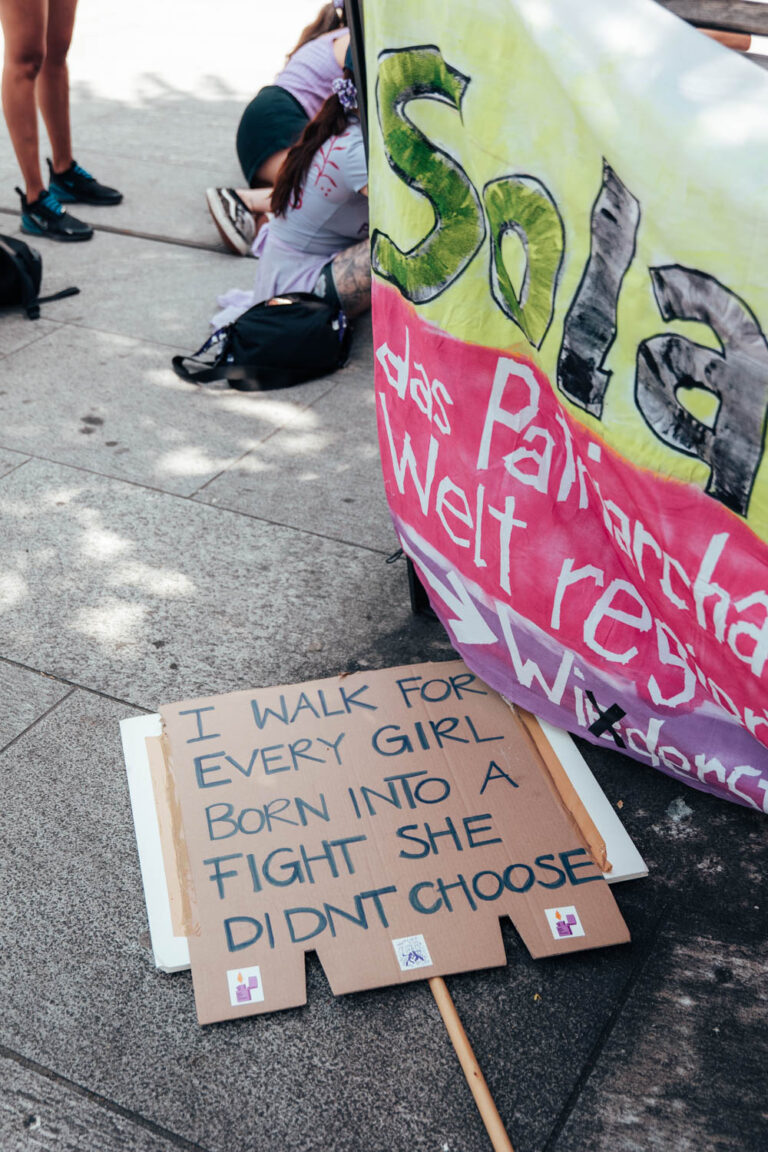 Sola
das Patriarcha
Welt regi
I WALK FOR
EVERY GIRL
BORN INTO A
FIGHT SHE
DIDNT CHOOSE